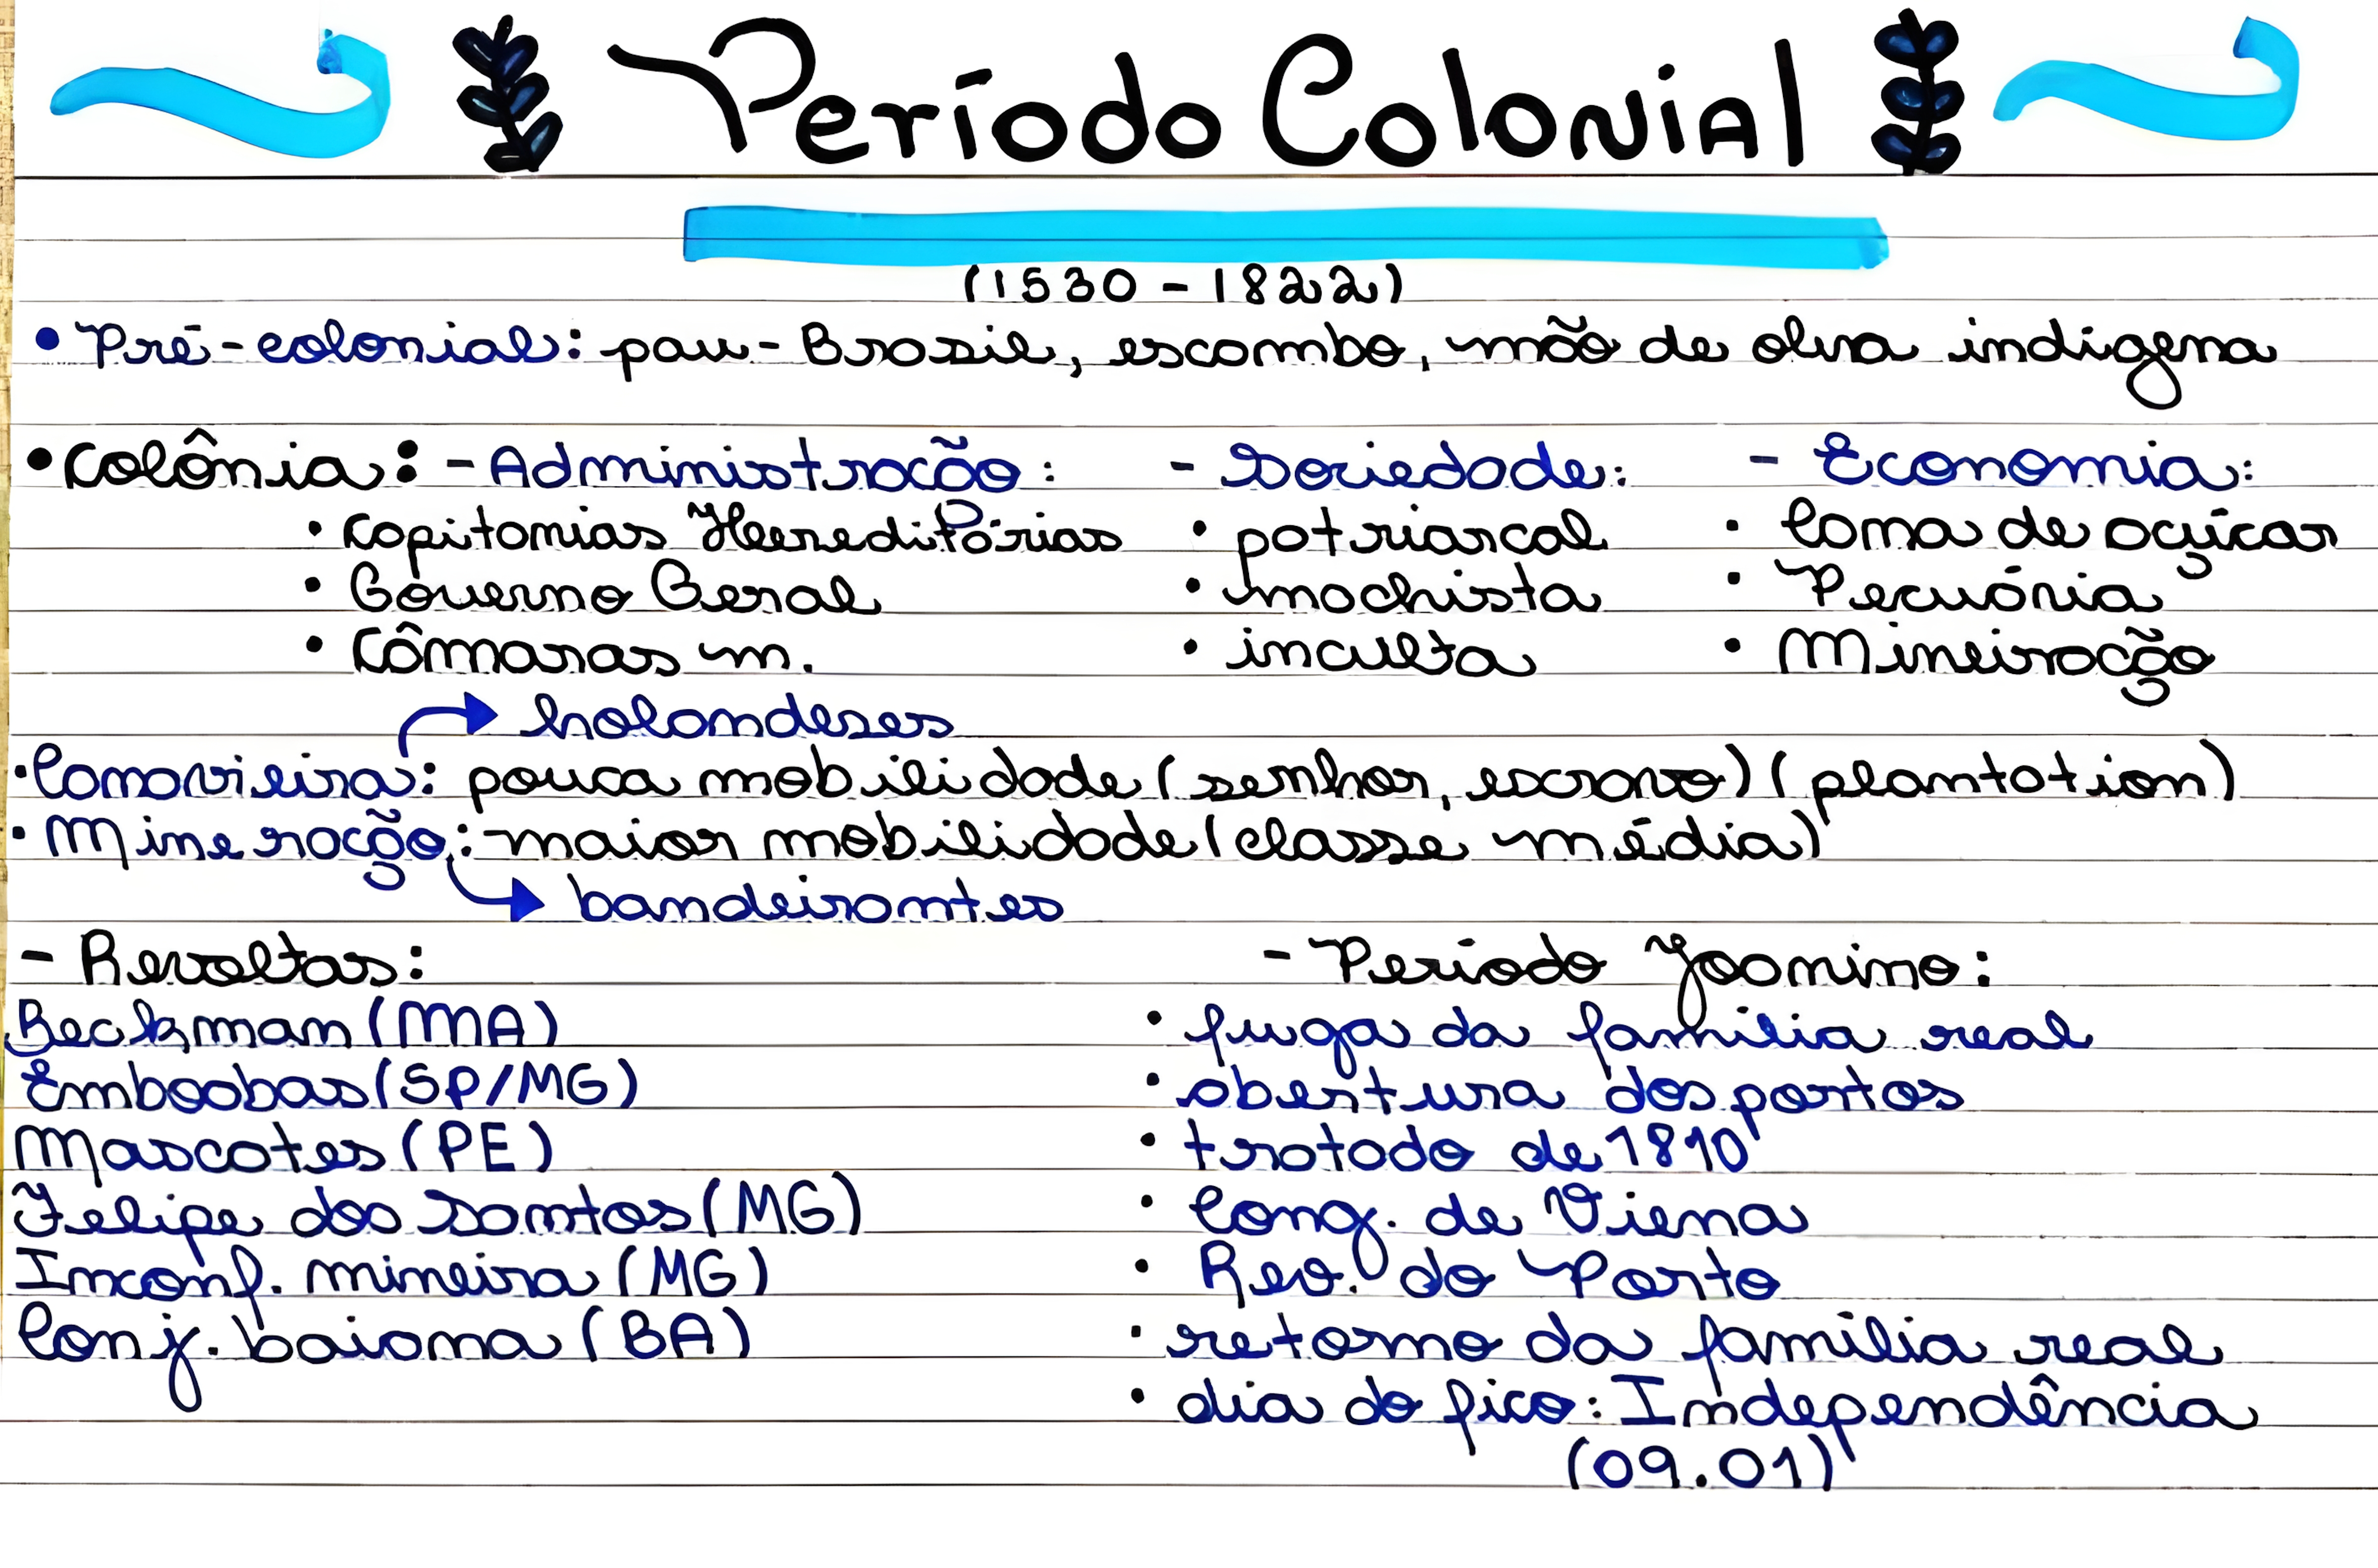 Período Colonial
(1530 - 1822)
• Pré-colonial: pau-Brasil, escambo, mão de obra indígena
• Colônia: - Administração: - Sociedade: - Economia:
• Capitanias Hereditárias • patriarcal • Cana de açúcar
• Governo Geral • machista • Pecuária
• Câmaras m. • inculta • Mineiração
holandeses
• Canavieira: pouca mobilidade (senhor, escravo) (plantation)
• Mineração: maior mobilidade (classe média)
bandeirantes
- Revoltas: - Período Joanino:
Beckman (MA) • fuga da família real
Emboabas (SP/MG) • abertura dos portos
Mascates (PE) • tratado de 1810
Felipe dos Santos (MG) • Cong. de Viena
Inconf. mineira (MG) • Rev. do Porto
Conj. baiana (BA) • retorno da família real
• dia do fico: Independência
(09.01)